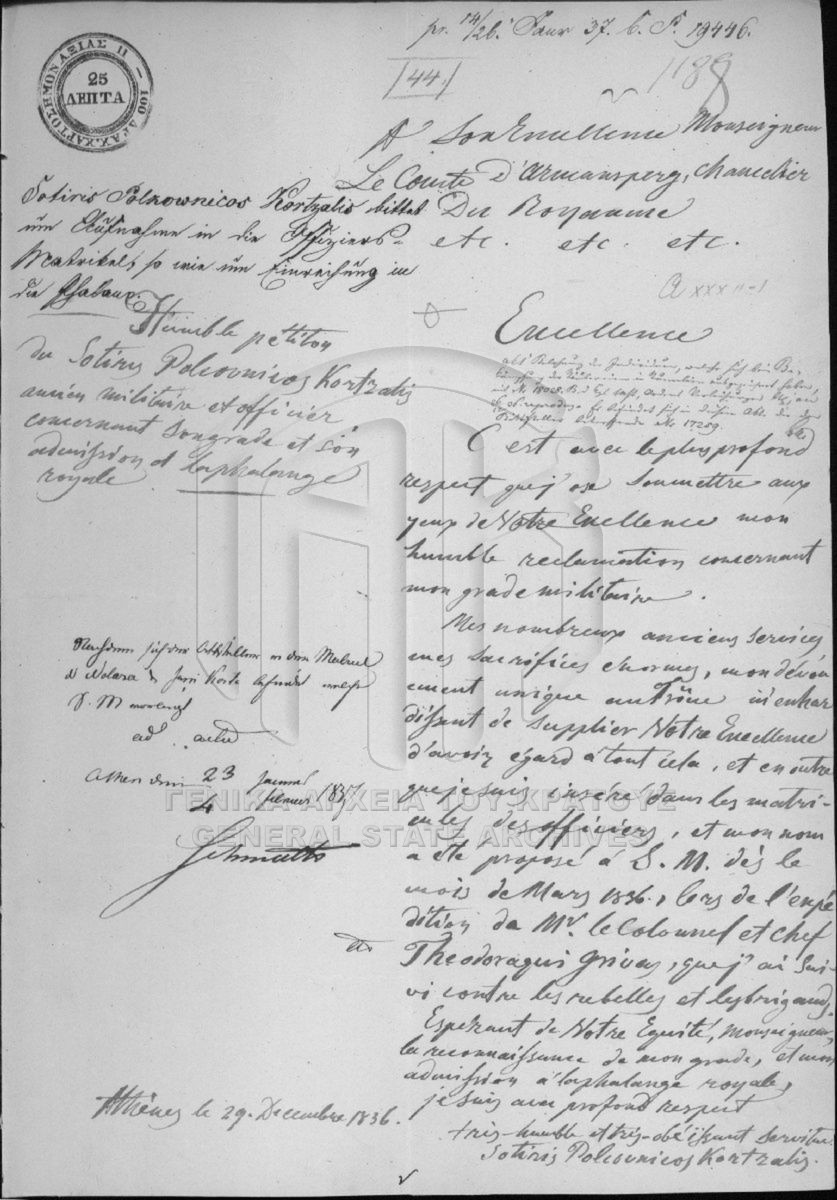 pr. 14/26. Janr 37. b. P. 19446.
44.
1188
25
ΛΕΠΤΑ
A Son Excellence Monseigneur
Le Comte d'Armansperg, Chancelier
Du Royaume
etc. etc. etc.
Sotiris Polkownicos Kortzalis bittet
um Aufnahme in die Offiziers-
Matrikel, so wie um Einreihung in
die Phalanx.
Humble pétition
du Sotiris Polcovnicos Kortzalis
ancien militaire et officier
concernant son grade et son
admission à la phalange
royale
Excellence
No 17259.
C'est avec le plus profond
respect que j'ose soumettre aux
yeux de Votre Excellence mon
humble reclamation concernant
mon grade militaire.
Mes nombreux anciens services
mes sacrifices énormes, mon dévou
ement unique au Trône m'enhar
dissent de supplier Votre Excellence
d'avoir égard à tout cela, et en outre
que je suis inséré dans les matri-
cules des officiers, et mon nom
a été proposé à S. M. dès le
mois de Mars 1836, lors de l'expé
dition du Mr. le Colonnel et chef
Theodoraqui Grivas, que j'ai sui-
vi contre les rebelles et les brigands.
Espérant de Votre Equité, Monseigneur,
la reconnaissance de mon grade, et mon
admission à la phalange royale,
je suis avec profond respect
très-humble et très-obéissant serviteur
Sotiris Polcovnicos Kortzalis.
Nachdem sich der Bittsteller in dem
S. M. vorliegt
ad acta
Athen den 23 Januar
4 Februar 1837
Schmaltz
Athènes le 29. Decembre 1836.
ΓΕΝΙΚΑ ΑΡΧΕΙΑ ΤΟΥ ΚΡΑΤΟΥΣ
GENERAL STATE ARCHIVES